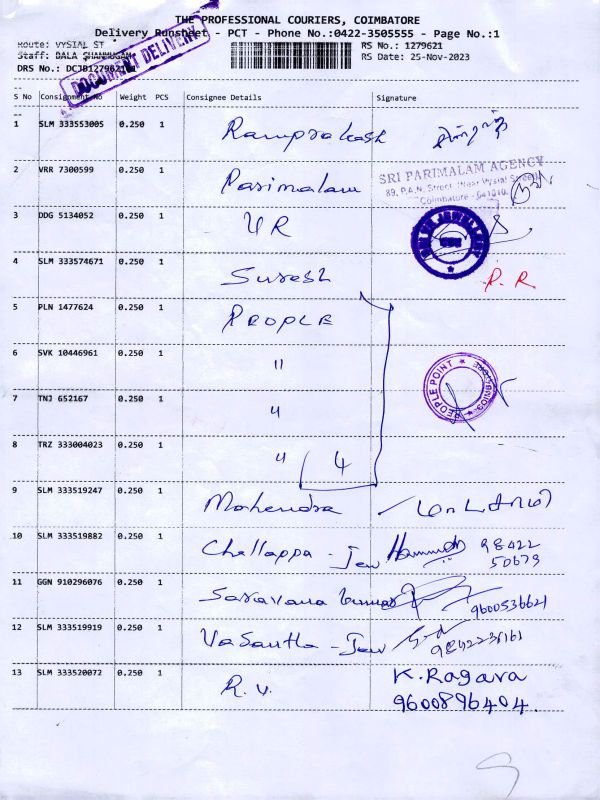 THE PROFESSIONAL COURIERS, COIMBATORE
Delivery Runsheet - PCT - Phone No.:0422-3505555 - Page No.:1
Route: VYSIAL ST
RS No.: 1279621
Staff: BALA SHANMUGAM
RS Date: 25-Nov-2023
DRS No.:
DOCUMENT DELIVERY
S No Consignment No Weight PCS Consignee Details Signature
1 SLM 333553005 0.250 1 Ramprakash
2 VRR 7300599 0.250 1 Parimalam
SRI PARIMALAM AGENCY
89, P.A.N. Street (Near Vysial Street)
Coimbatore - 641010
3 DDG 5134052 0.250 1 UR
4 SLM 333574671 0.250 1 Suresh P. R
5 PLN 1477624 0.250 1 PEOPLE
6 SVK 10446961 0.250 1 "
PEOPLE POINT * COIMBATORE *
7 TNJ 652167 0.250 1 "
8 TRZ 333004023 0.250 1 " 4
9 SLM 333519247 0.250 1 Mahendra
10 SLM 333519882 0.250 1 Challappa - Jew 98422
50679
11 GGN 910296076 0.250 1 Saravana kumar 9600536621
12 SLM 333519919 0.250 1 Vasantha - Jew
13 SLM 333520072 0.250 1 R.V. K.Ragava
9600896404.